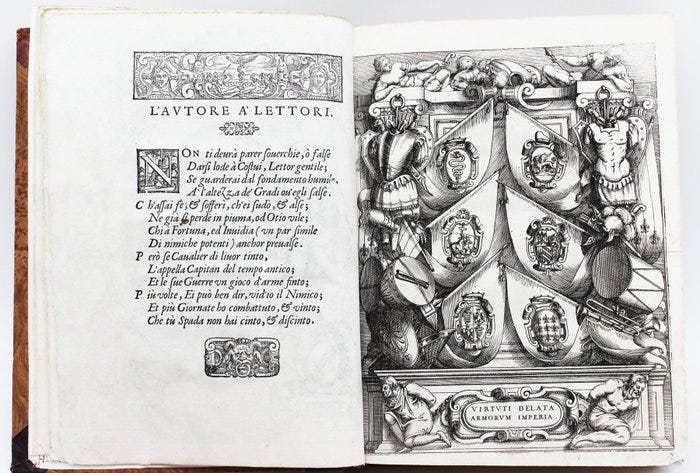 L'AVTORE A' LETTORI.
NON ti deurà parer souerchie, ò false
Darsi lode à Costui, Lettor gentile;
Se guarderai dal fondamento humile
A l'altezza de' Gradi ou'egli salse.
Ch'assai fè, & sofferì, ch'ei sudò, & alse;
Ne già si perde in piuma, od Otio vile;
Chi à Fortuna, ed Inuidia (vn par simile
Di nimiche potenti) anchor preualse.
Però se Caualier di liuor tinto,
L'appella Capitan del tempo antico;
Et le sue Guerre vn gioco d'arme finto;
Più volte, Ei può ben dir, vid'io il Nimico;
Et più Giornate ho combattuto, & vinto;
Che tù Spada non hai cinto, & discinto.
VIRTVTI DELATA
ARMORVM IMPERIA.